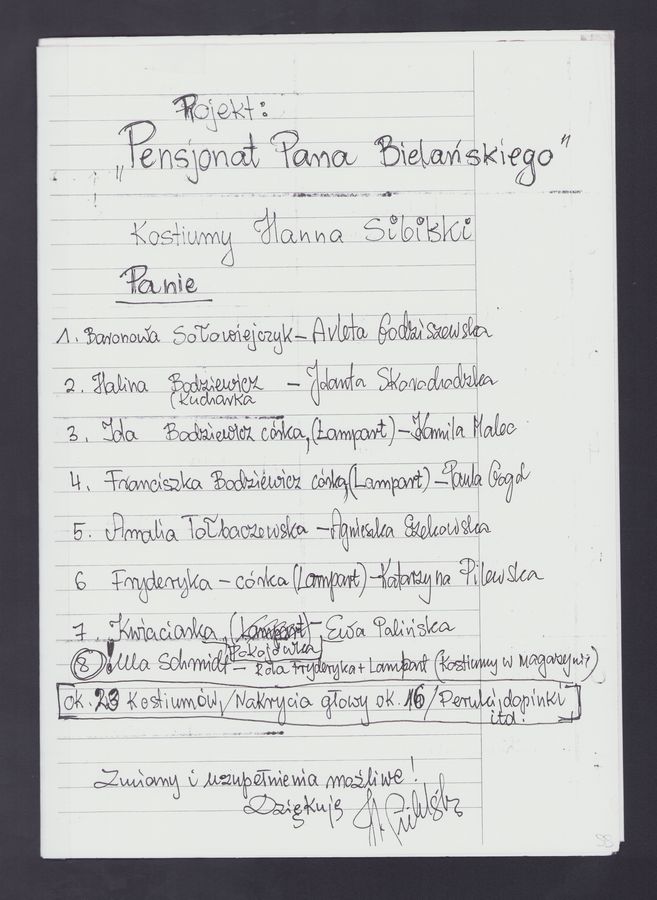 Projekt:
„Pensjonat Pana Bielańskiego"
Kostiumy Hanna Sibilski
Panie
1. Baronowa Sołowiejczyk – Arleta Godziszewska
2. Halina Bodziewicz – Jolanta Skorochodzka
(Kucharka
3. Ida Bodziewicz córka, (Lampart) – Kamila Malec
4. Franciszka Bodziewicz córka, (Lampart) – Paula Gogol
5. Amalia Tołbaczewska – Agnieszka Czekowska
6 Fryderyka – córka (Lampart) – Katarzyna Pilewska
7. Kwiaciarka, (Lampart) – Ewa Palińska
Pokojówka
8! Ula Schmidt – rola Fryderyka + Lampart (Kostiumy w magazynie)
ok. 23 Kostiumów, / Nakrycia głowy ok. 16 / Peruki, dopinki
itd.
Zmiany i uzupełnienia możliwe!
Dziękuję